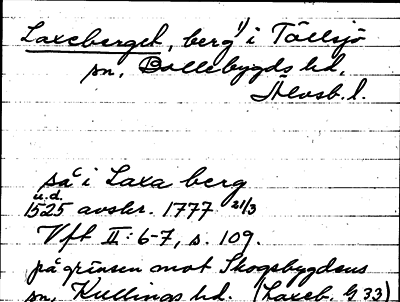 Laxeberget, berg 1) i Töllsjö
sn, Bollebygds hd,
Älvsb. l.
så i Laxa berg
u.d.
1525 avskr. 1777 21/3
Vft II: 6-7, s. 109.
på gränsen mot Skogsbygdens
sn, Kullings hd. (Laxeb. G 33)